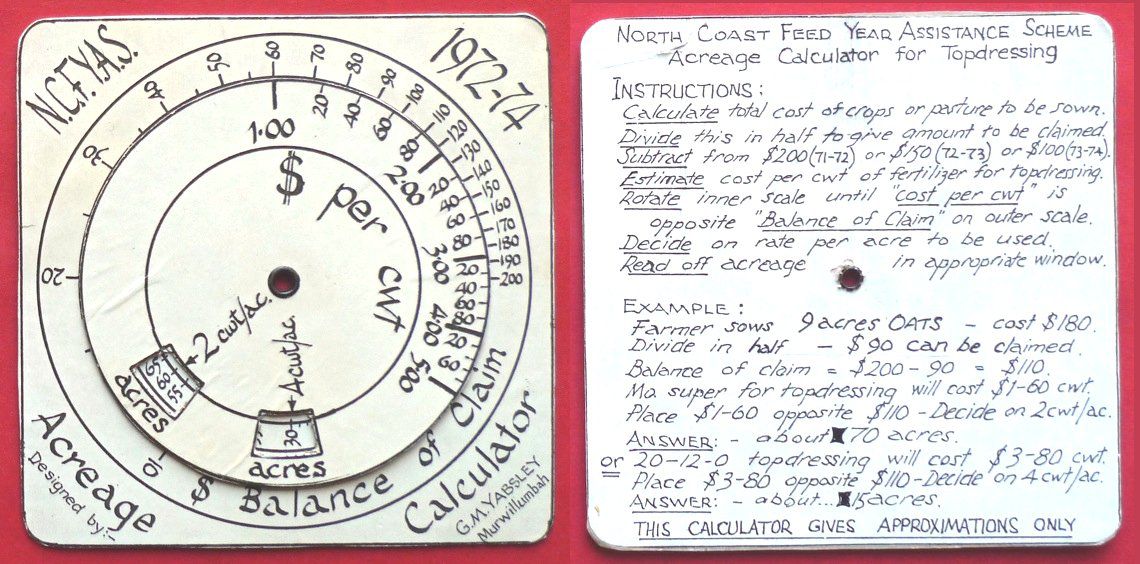 N.C.F.Y.A.S.
1972-74
10
20
30
40
50
60
70
80
90
100
110
120
130
140
150
160
170
180
190
200
$ Balance of Claim
1.00
20
40
60
80
2.00
20
40
60
80
3.00
20
40
60
80
4.00
20
60
5.00
$ per cwt
2 cwt/ac.
65
60
55
acres
4 cwt/ac.
30
acres
Acreage
Calculator
Designed by:-
G.M. YABSLEY
Murwillumbah
NORTH COAST FEED YEAR ASSISTANCE SCHEME
Acreage Calculator for Topdressing
INSTRUCTIONS:
Calculate total cost of crops or pasture to be sown.
Divide this in half to give amount to be claimed.
Subtract from $200 (71-72) or $150 (72-73) or $100 (73-74).
Estimate cost per cwt of fertilizer for topdressing.
Rotate inner scale until "cost per cwt" is
opposite "Balance of Claim" on outer scale.
Decide on rate per acre to be used.
Read off acreage in appropriate window.
EXAMPLE:
Farmer sows 9 acres OATS - cost $180.
Divide in half - $90 can be claimed.
Balance of claim = $200 - 90 = $110.
Mo super for topdressing will cost $1-60 cwt.
Place $1-60 opposite $110 - Decide on 2cwt/ac.
ANSWER: - about 70 acres.
or 20-12-0 topdressing will cost $3-80 cwt.
Place $3-80 opposite $110 - Decide on 4cwt/ac.
ANSWER: - about... 15 acres.
THIS CALCULATOR GIVES APPROXIMATIONS ONLY